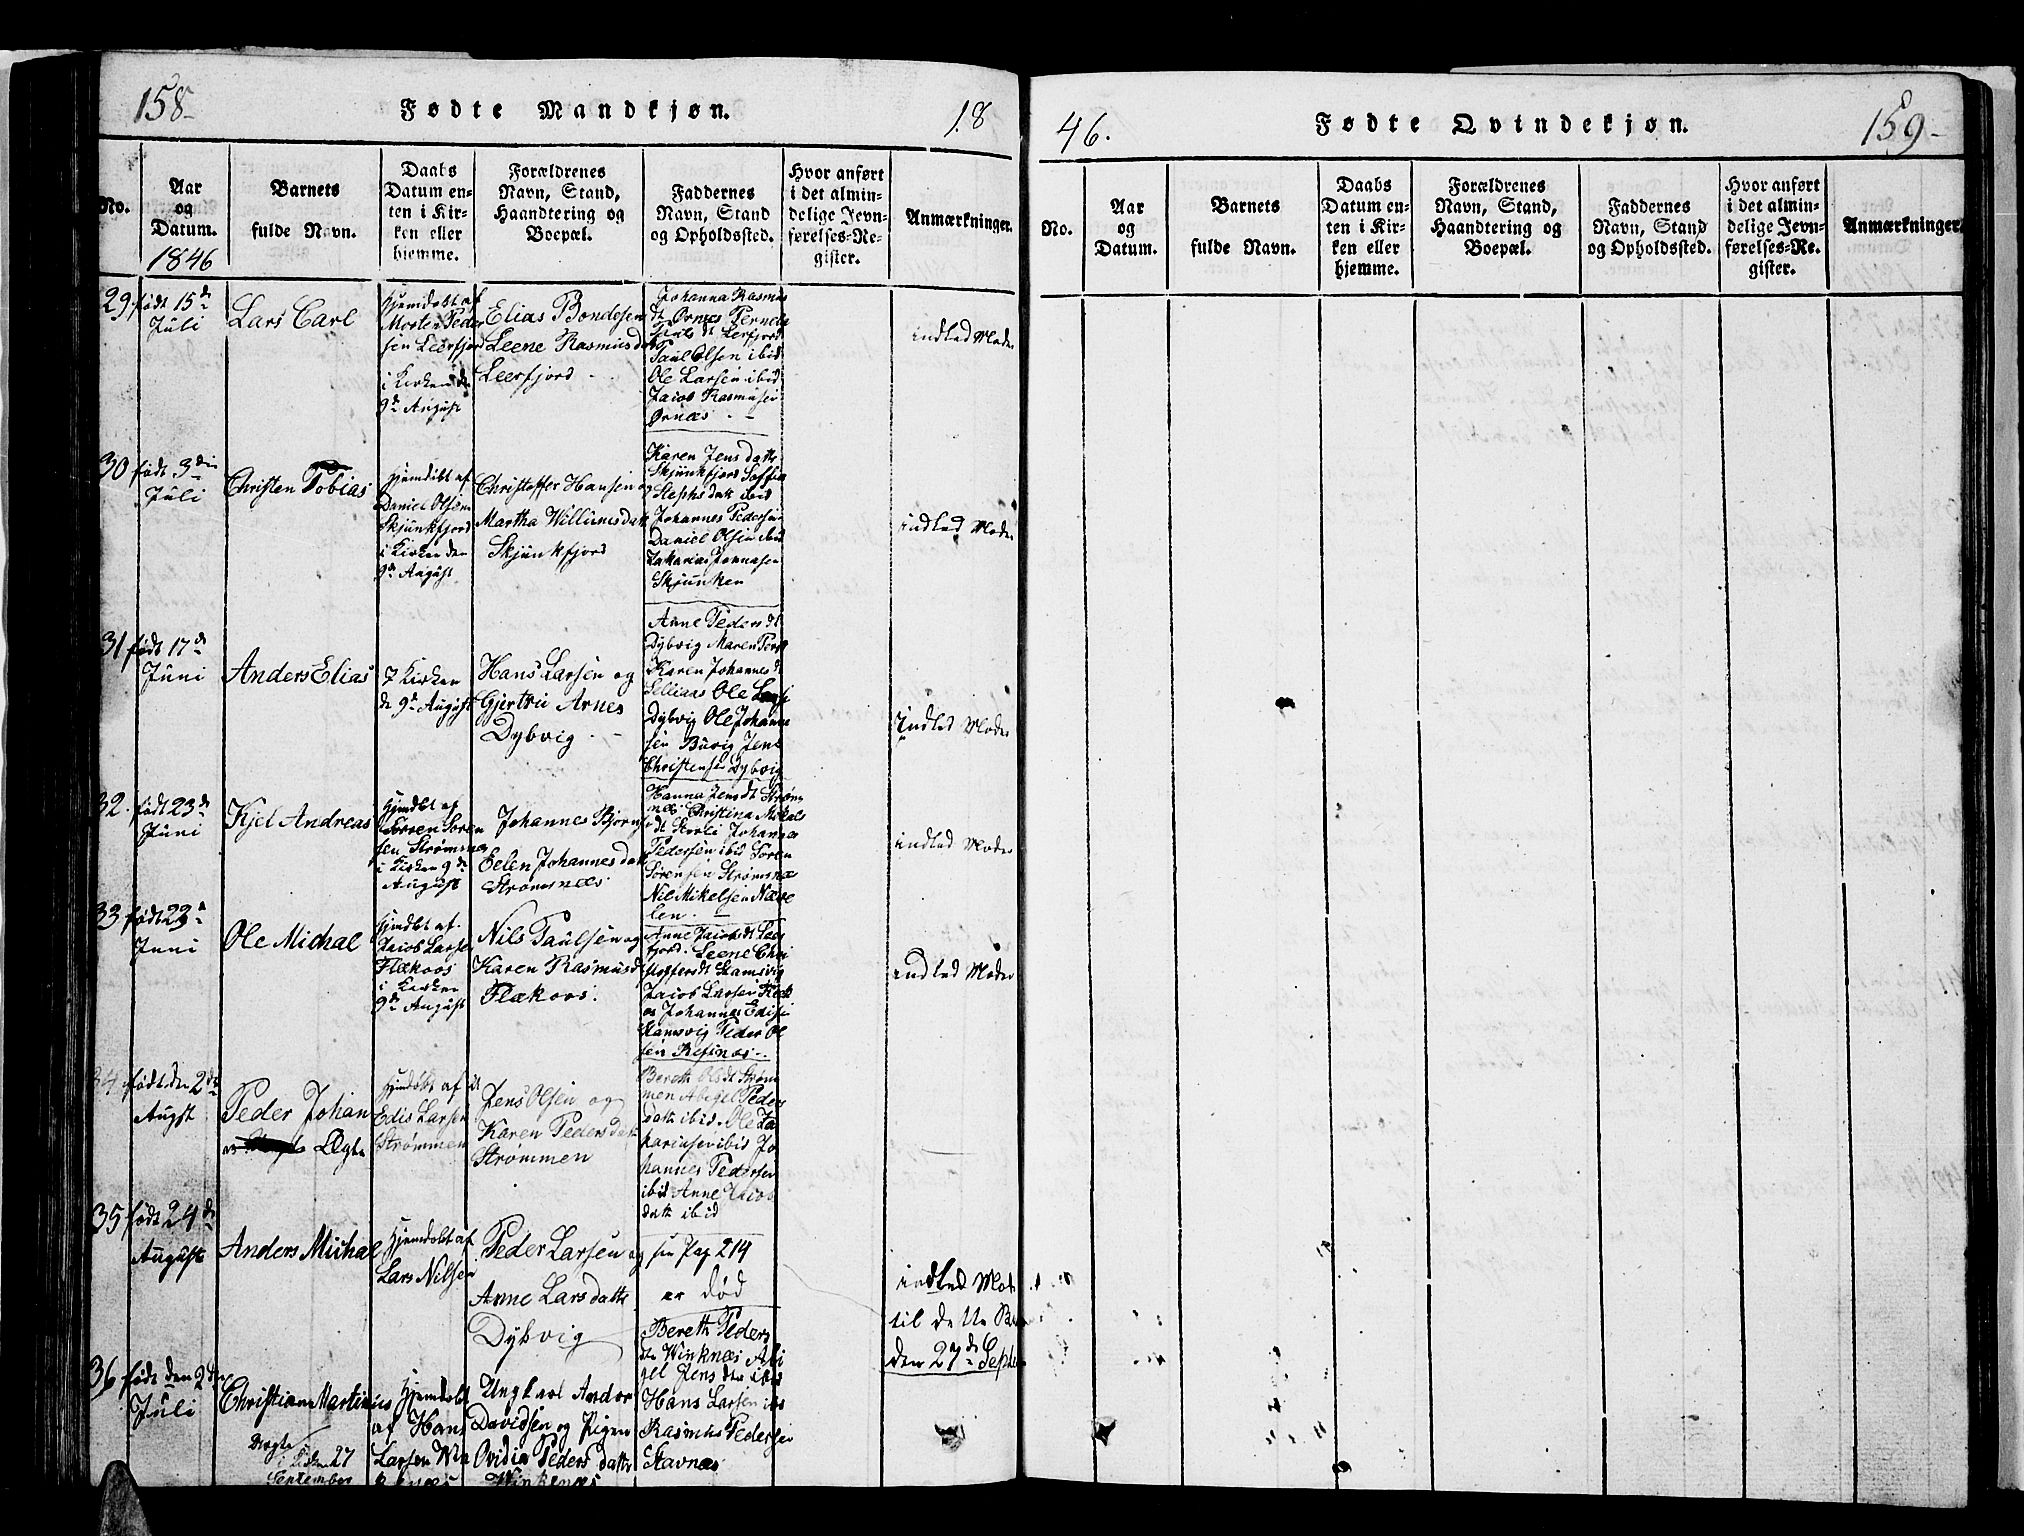 158
Fødte Mandkjøn.
18
No.
Aar
og
Datum.
1846
Barnets
fulde Navn.
Daabs
Datum en-
ten i Kir-
ken eller
hjemme.
Forældrenes
Navn, Stand,
Haandtering og
Boepæl.
Faddernes
Navn, Stand
og Opholdssted.
Hvor anført
i det almin-
delige Jevn-
førelses-Re-
gister.
Anmærkninger.
29
født 15de
Juli
Lars Carl
Hjemdøbt af
Morten Peder
sen Leerfjor
i Kirken de
9de August
Elias Bondesen
Leene Rasmusda
Leerfjord
Johanna Rasmus
dt Ørnes Pernele
dt Leerfjord
Paul Olsen ibid
Ole Larsen ibid
Jacob Rasmuser
Ørnæs
indled Moder
30
født 3die
Juli
Christen Tobias
Hjemdøbt af
Daniel Olsen
Skjunkfjord
i Kirken den
9de August
Christoffer Hansen og
Martha Willumsdatt
Skjunkfjord
Karen Jensdatt
Skjunkfjord Soffia
Stephsdatt ibid
Johannes Pedersen
Daniel Olsen ibid
Zakarias Jonnasen
Skjunken
indled Moder
31
født 17de
Juni
Anders Elias
I Kirken
de 9de August
Hans Larsen og
Gjertru Arnes
Dybvig
Anne Peders dt
Dybvig Maren Pers
Karen Johannes dt
Seliaas Ole Larsi
Dybvig Ole Johanne
sen Buvig Jens
Christensen Dybvig
Indled Moder
32
født 23de
Juni
Kjel Andreas
Hjmdbt af
Søren Søren
sen Strømsnæ
i Kirken 9de
August
Johannes Bjørns
Eelen Johannesdatt
Strømsnæs
Hanna Jensdt Strøm
næs Christina Mikals
dt Storli Johannes
Pedersen ibid Søren
Sørensen Strømsnæ
Nil Mikelsen Næve
len
indled Moder
33
født 23de
Juni
Ole Michal
Hjmdbt af
Jacob Larsen
Flækoos
i Kirken
9de August
Nils Paulsen og
Karen Rasmusd
Flækoos.
Anne Jacobsdt Leer
fjord. Leene Chri
stoffersdt Stamsvig
Jacob Larsen Flæk
os Johannes Edisi
Hamsvig Peder Ol
sen Refsnæs
indled Moder
34
født den 2den
Augst
Peder Johan
Ægte
Hjmdøbt af
Edis Larsen
Strømmen
Jens Olsen og
Karen Peders datt
Strømmen
Bereth Olsdt Strøm
men Abigel Peders
datt ibid. Ole Za
kariasen ibid Jo
hannes Pedersen
ibid Anne Jacob
datt ibid
35
født 24de
August
Anders Michal
Hjemdøbt af
Lars Nilsen
Peder Larsen og
Anne Larsdatte
Dybvig
see Pag 214
er død
indled Mod
til dette Ba
den 27de Septe
36
født den 2den
Juli
Christian Martinus
Uægte
27
September
Hjemdøbt
af Hans
Larsen Win
kenæs
Ungkarl Andor
Davidsen og Pigen
Ovidia Peders datte
Winkenæs
Bereth Peders
dt Winknæs Abi
gel Jens dtr ibid
Hans Larsen ibi
Rasmus Pedersen
Stavnæs
46.
Fødte Qvindekjøn.
159
No.
Aar
og
Datum.
Barnets
fulde Navn.
Daabs
Datum en-
ten i Kir-
ken eller
hjemme.
Forældrenes
Navn, Stand,
Haandtering og
Boepæl.
Faddernes
Navn, Stand
og Opholdssted.
Hvor anført
i det almin-
delige Jevn-
førelses-Re-
gister.
Anmærkninger.